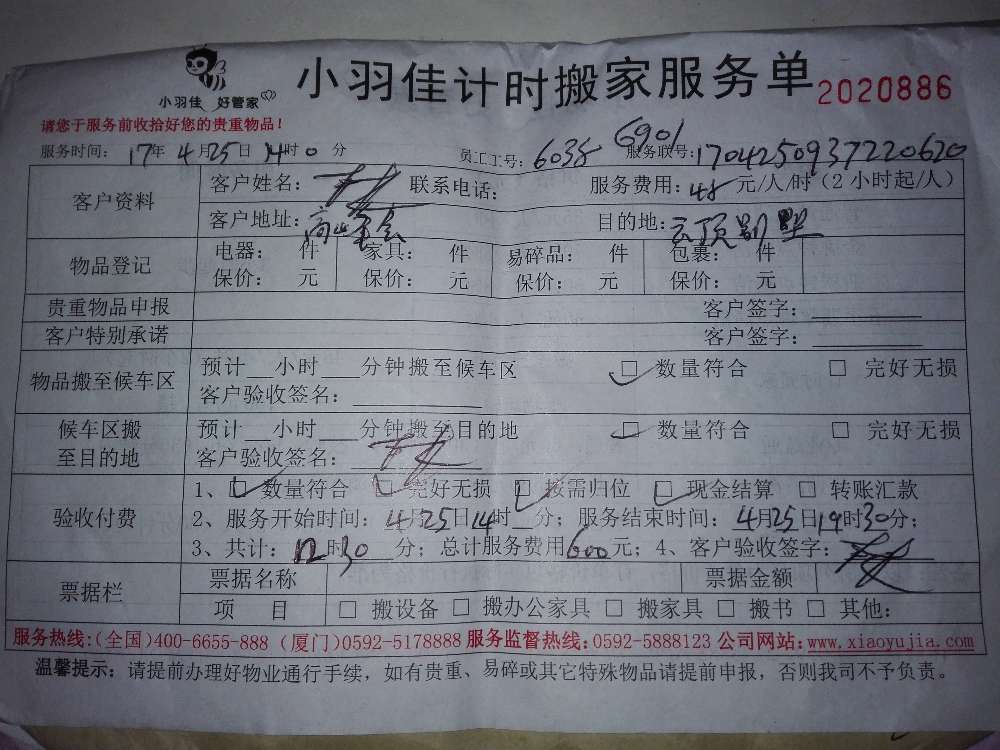 小羽佳 好管家
小羽佳计时搬家服务单 2020886
请您于服务前收拾好您的贵重物品！
服务时间： 17年 4月25日 14时0分 员工工号：6038 6901 服务联号：1704250937220620
客户资料 客户姓名： 联系电话： 服务费用：48元/人/时（2小时起/人）
客户地址： 目的地：云顶别墅
物品登记 电器： 件 家具： 件 易碎品： 件 包裹： 件
保价： 元 保价： 元 保价： 元 保价： 元
贵重物品申报 客户签字：
客户特别承诺 客户签字：
物品搬至候车区 预计__小时___分钟搬至候车区 □ 数量符合 □ 完好无损
客户验收签名：
候车区搬至目的地 预计__小时___分钟搬至目的地 □ 数量符合 □ 完好无损
客户验收签名：
验收付费 1、□ 数量符合 □ 完好无损 □ 按需归位 □ 现金结算 □ 转账汇款
2、服务开始时间：4月25日14时__分；服务结束时间：4月25日19时30分；
3、共计：12时30分；总计服务费用600元；4、客户验收签字：
票据栏 票据名称 票据金额
项 目 □ 搬设备 □ 搬办公家具 □ 搬家具 □ 搬书 □ 其他：
服务热线：(全国)400-6655-888 (厦门)0592-5178888 服务监督热线：0592-5888123 公司网站：www.xiaoyujia.com
温馨提示：请提前办理好物业通行手续，如有贵重、易碎或其它特殊物品请提前申报，否则我司不予负责。